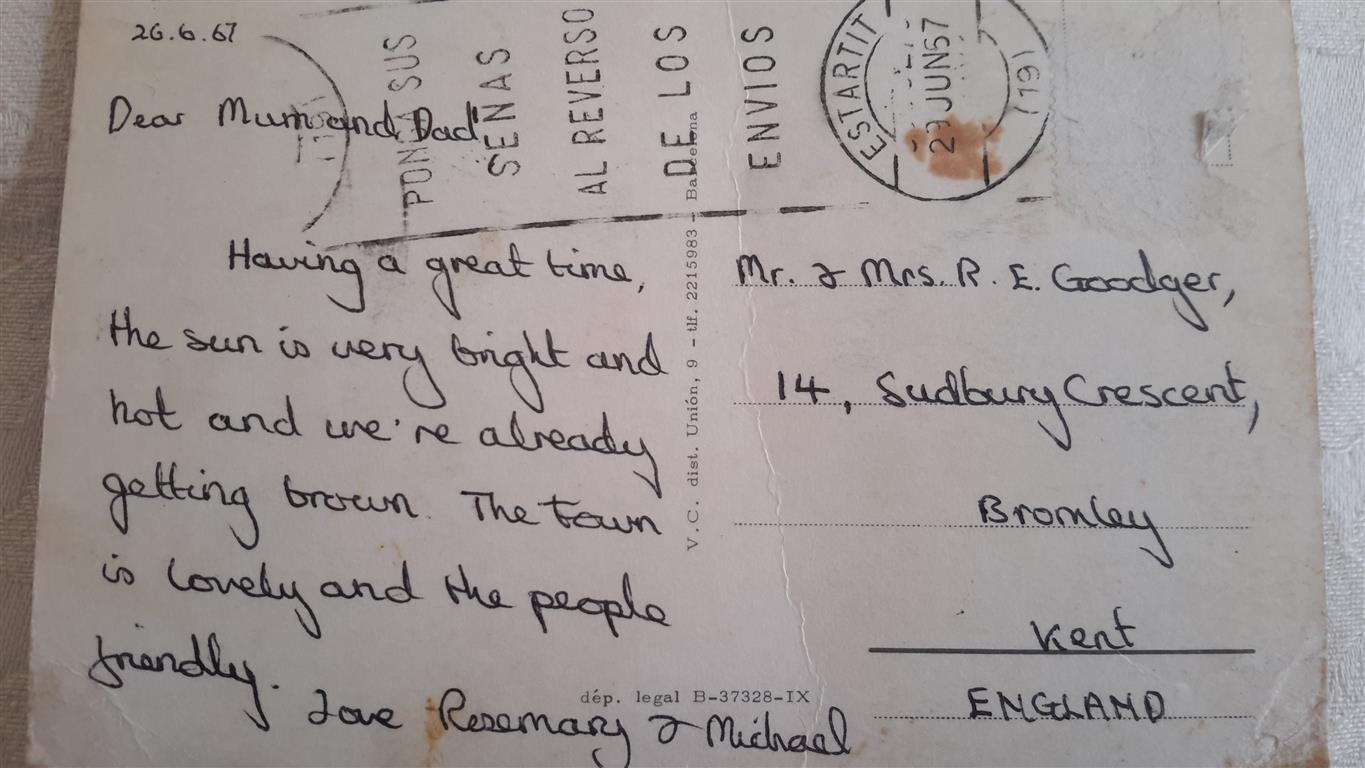 26.6.67
Dear Mum and Dad,
Having a great time,
the sun is very bright and
hot and we're already
getting brown. The town
is lovely and the people
friendly.
Love Rosemary & Michael
PONGA SUS
SEÑAS
AL REVERSO
DE LOS
ENVIOS
ESTARTIT
29 JUN 67
(19)
V.C. dist. Unión, 9 - tlf. 2215983 - Barcelona
Mr. & Mrs. R. E. Goodger,
14, Sudbury Crescent,
Bromley
Kent
ENGLAND
dép. legal B-37328-IX